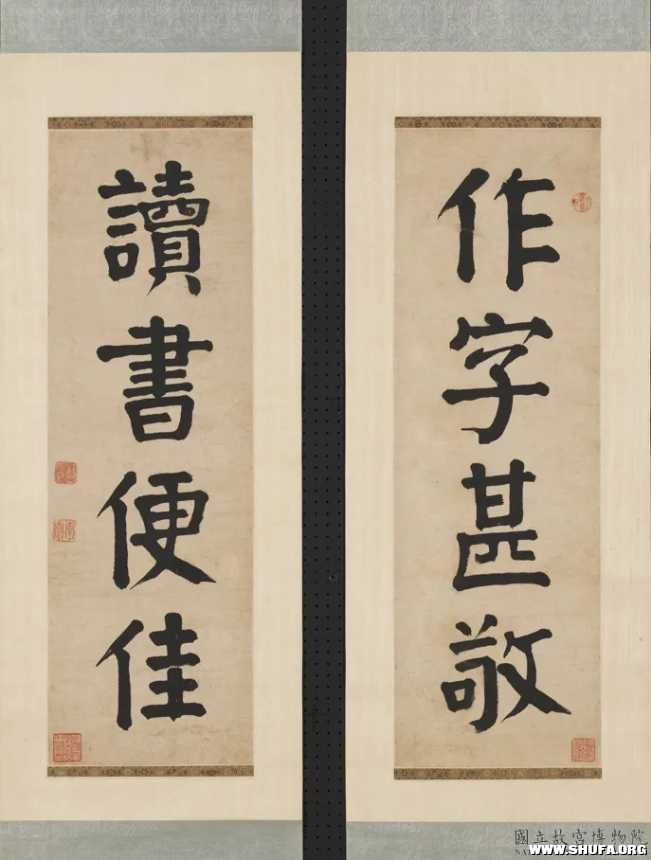 作字甚敬
讀書便佳
國立故宮博物院
WWW.SHUFA.ORG